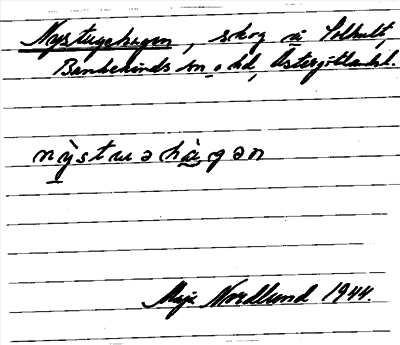 Nystugehagen, skog å Solhult,
Bankekinds sn o hd, Östergötlands l.
nỳstuəhàgən
Maja Nordlund 1944.